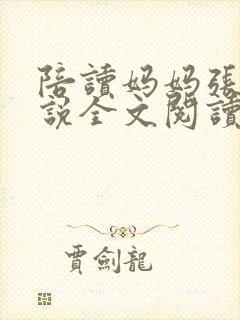 陪讀妈妈張
說全文閱讀
賈劍龍